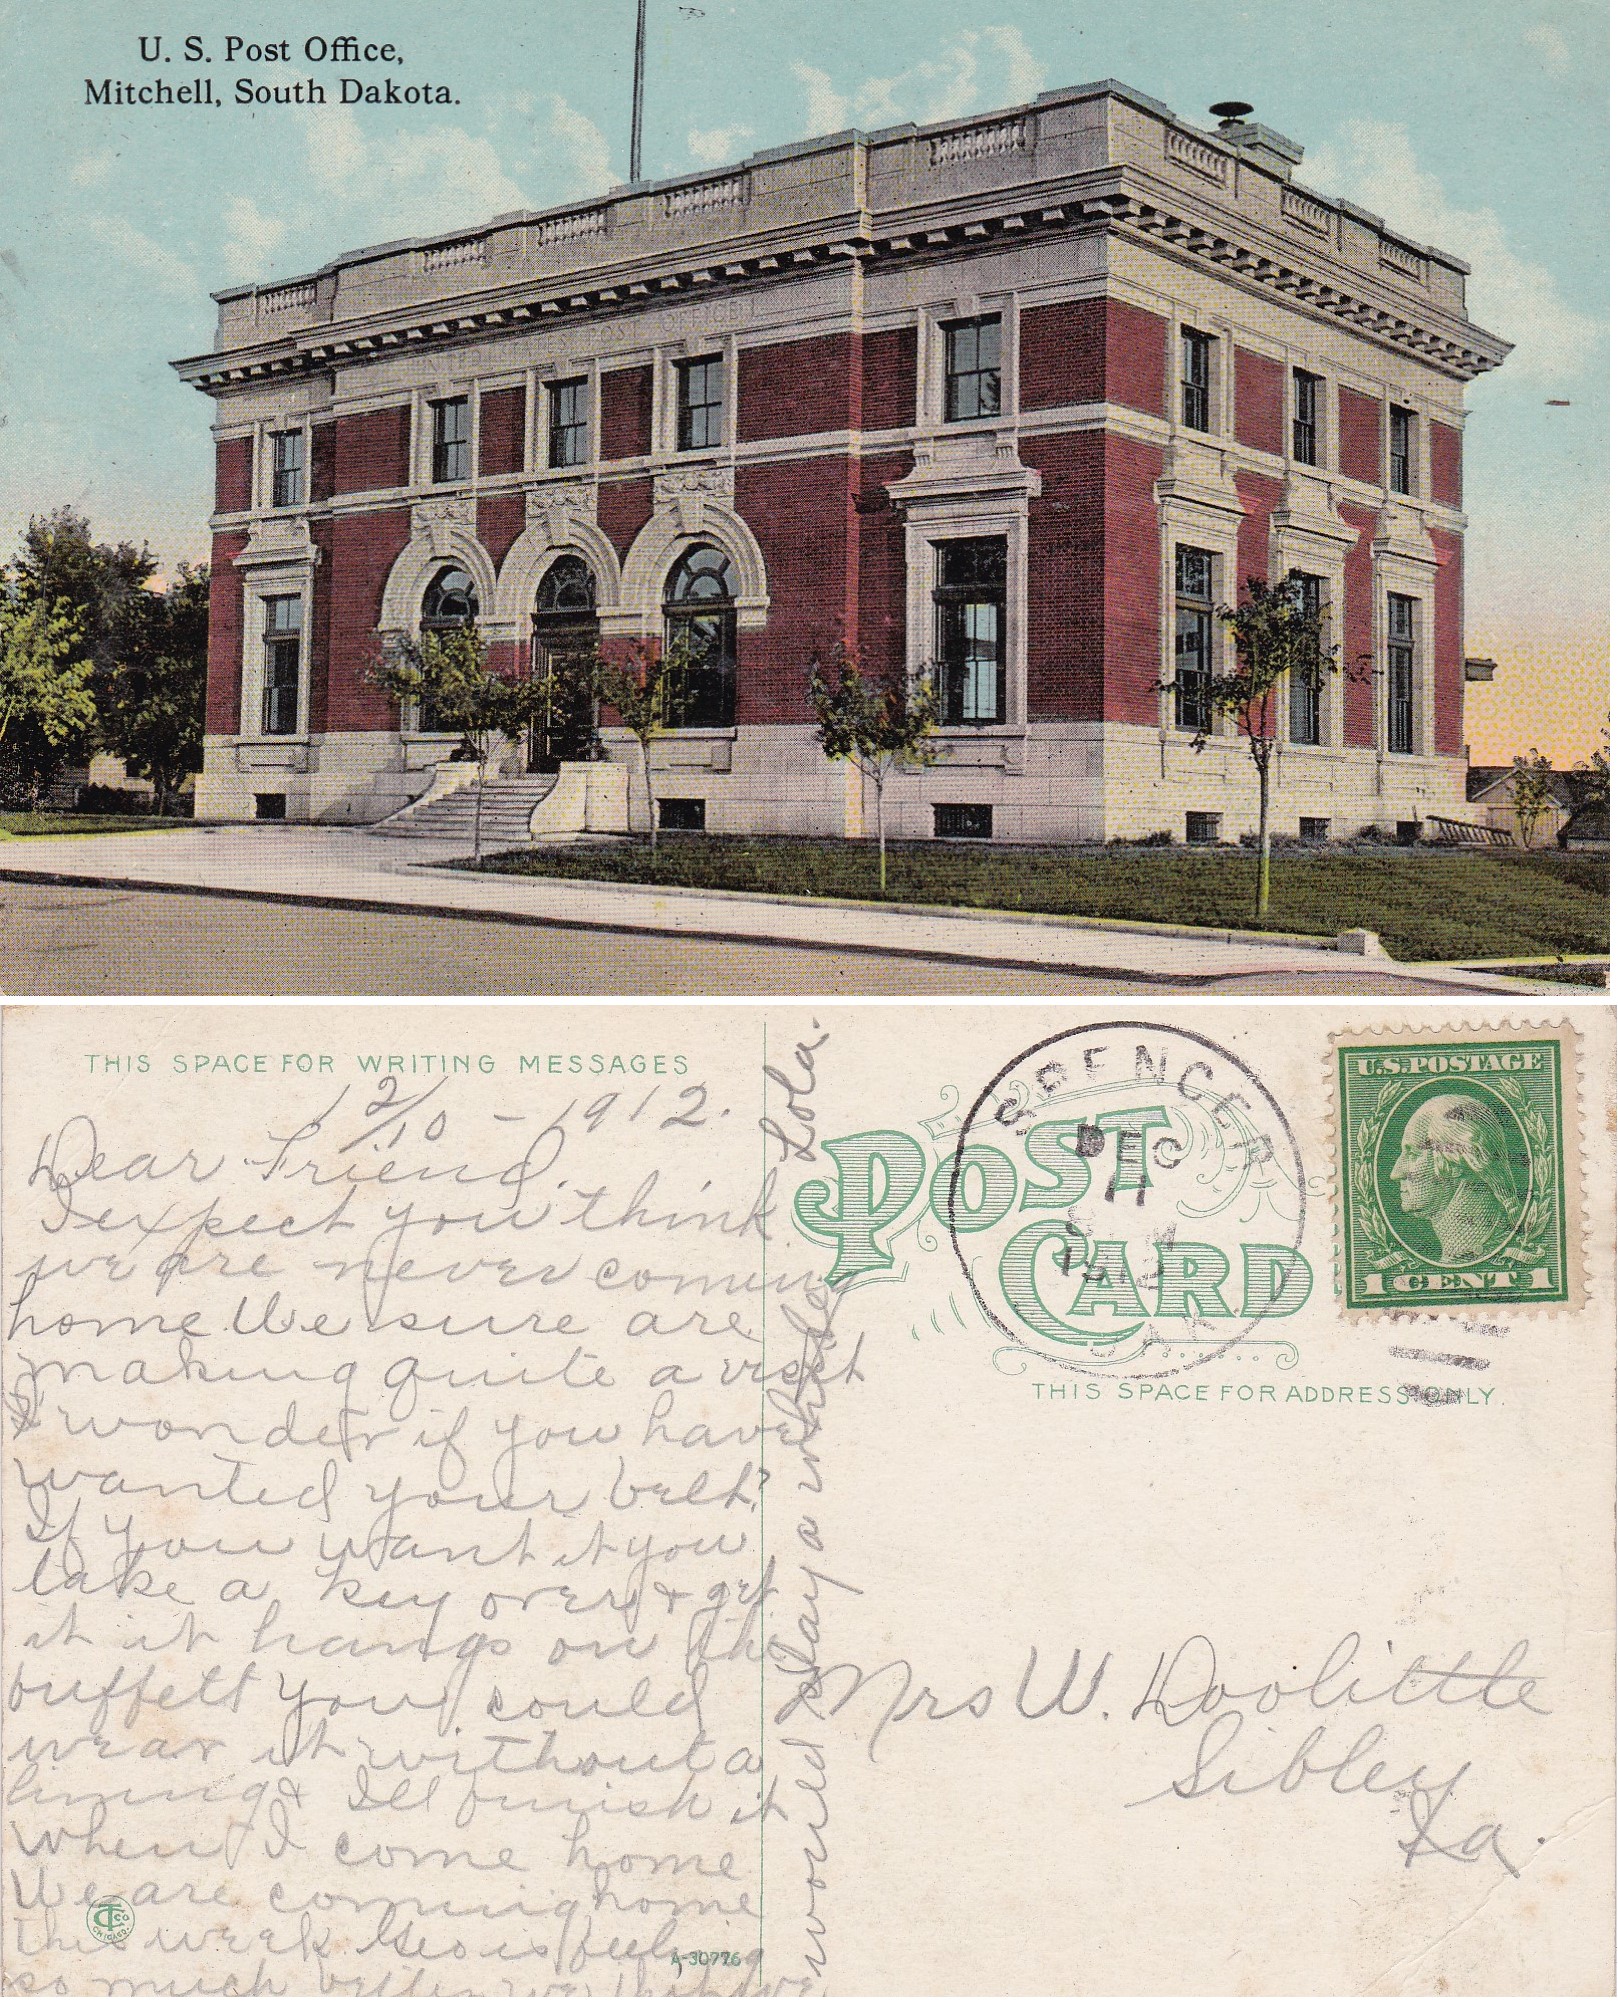 U. S. Post Office,
Mitchell, South Dakota.
UNITED STATES POST OFFICE
THIS SPACE FOR WRITING MESSAGES
12/10 - 1912.
Dear Friend.
I expect you think
we are never coming
home. We sure are
making quite a visit
I wonder if you have
wanted your belt?
If you want it you
take a key over & get
it it hangs on the
buffett you could
wear it without a
lining & Ill finish it
when I come home
We are coming home
this week Geo is feeling
so much better we thought we
would stay a while Lola.
TCCo
CHICAGO.
A-30776
POST
CARD
SPENCER
DEC
11
1912
S. DAK.
U.S. POSTAGE
1 CENT 1
THIS SPACE FOR ADDRESS ONLY.
Mrs W. Doolittle
Sibley
Ia.